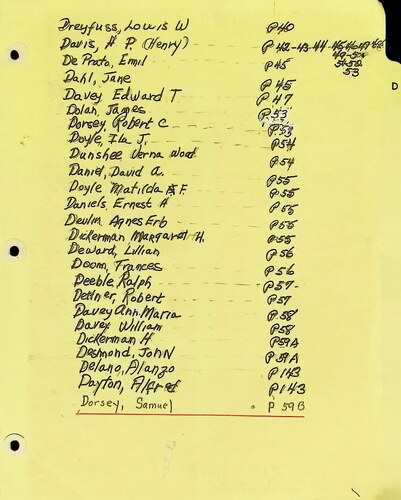 Dreyfuss, Louis W P40
Davis, H P. (Henry) P 42-43-44-45-46-47
De Prato, Emil P45 51-52
53
Dahl, Jane P 45
D
Davey Edward T P 47
Dolan, James P.53
Dorsey, Robert C P53
Doyle, Ila J. P54
Dunshee Verna Wood P54
Daniel, David A. P55
Doyle Matilda F. P55
Daniels, Ernest A P55
Deulin Agnes Erb P55
Dickerman Margaret H. P55
Deward, Lillian P56
Doom, Frances P56
Deeble Ralph P57-
Dettner, Robert P57
Davey Ann.Maria P58
Davey William P58
Dickerman H P59A
Desmond, John P59A
Delano, Alanzo P143
Payton, Alfred P143
Dorsey, Samuel P 59B